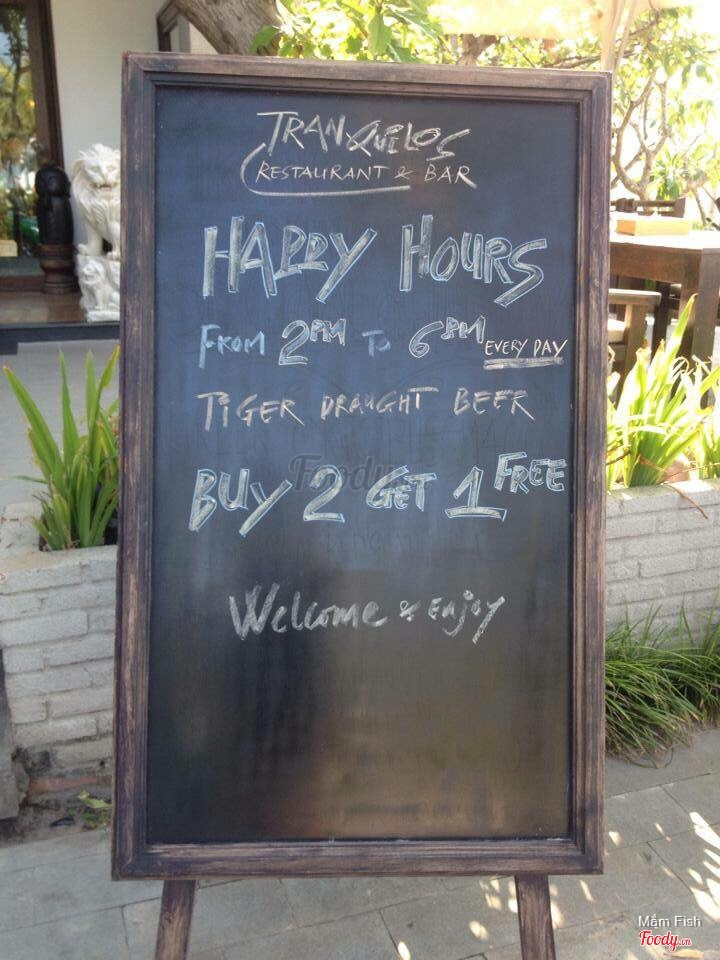 TRANQUILOS
RESTAURANT & BAR
HAPPY HOURS
FROM 2PM TO 6PM EVERY DAY
TIGER DRAUGHT BEER
BUY 2 GET 1 FREE
Foody
Welcome & Enjoy
Mắm Fish
Foody.vn